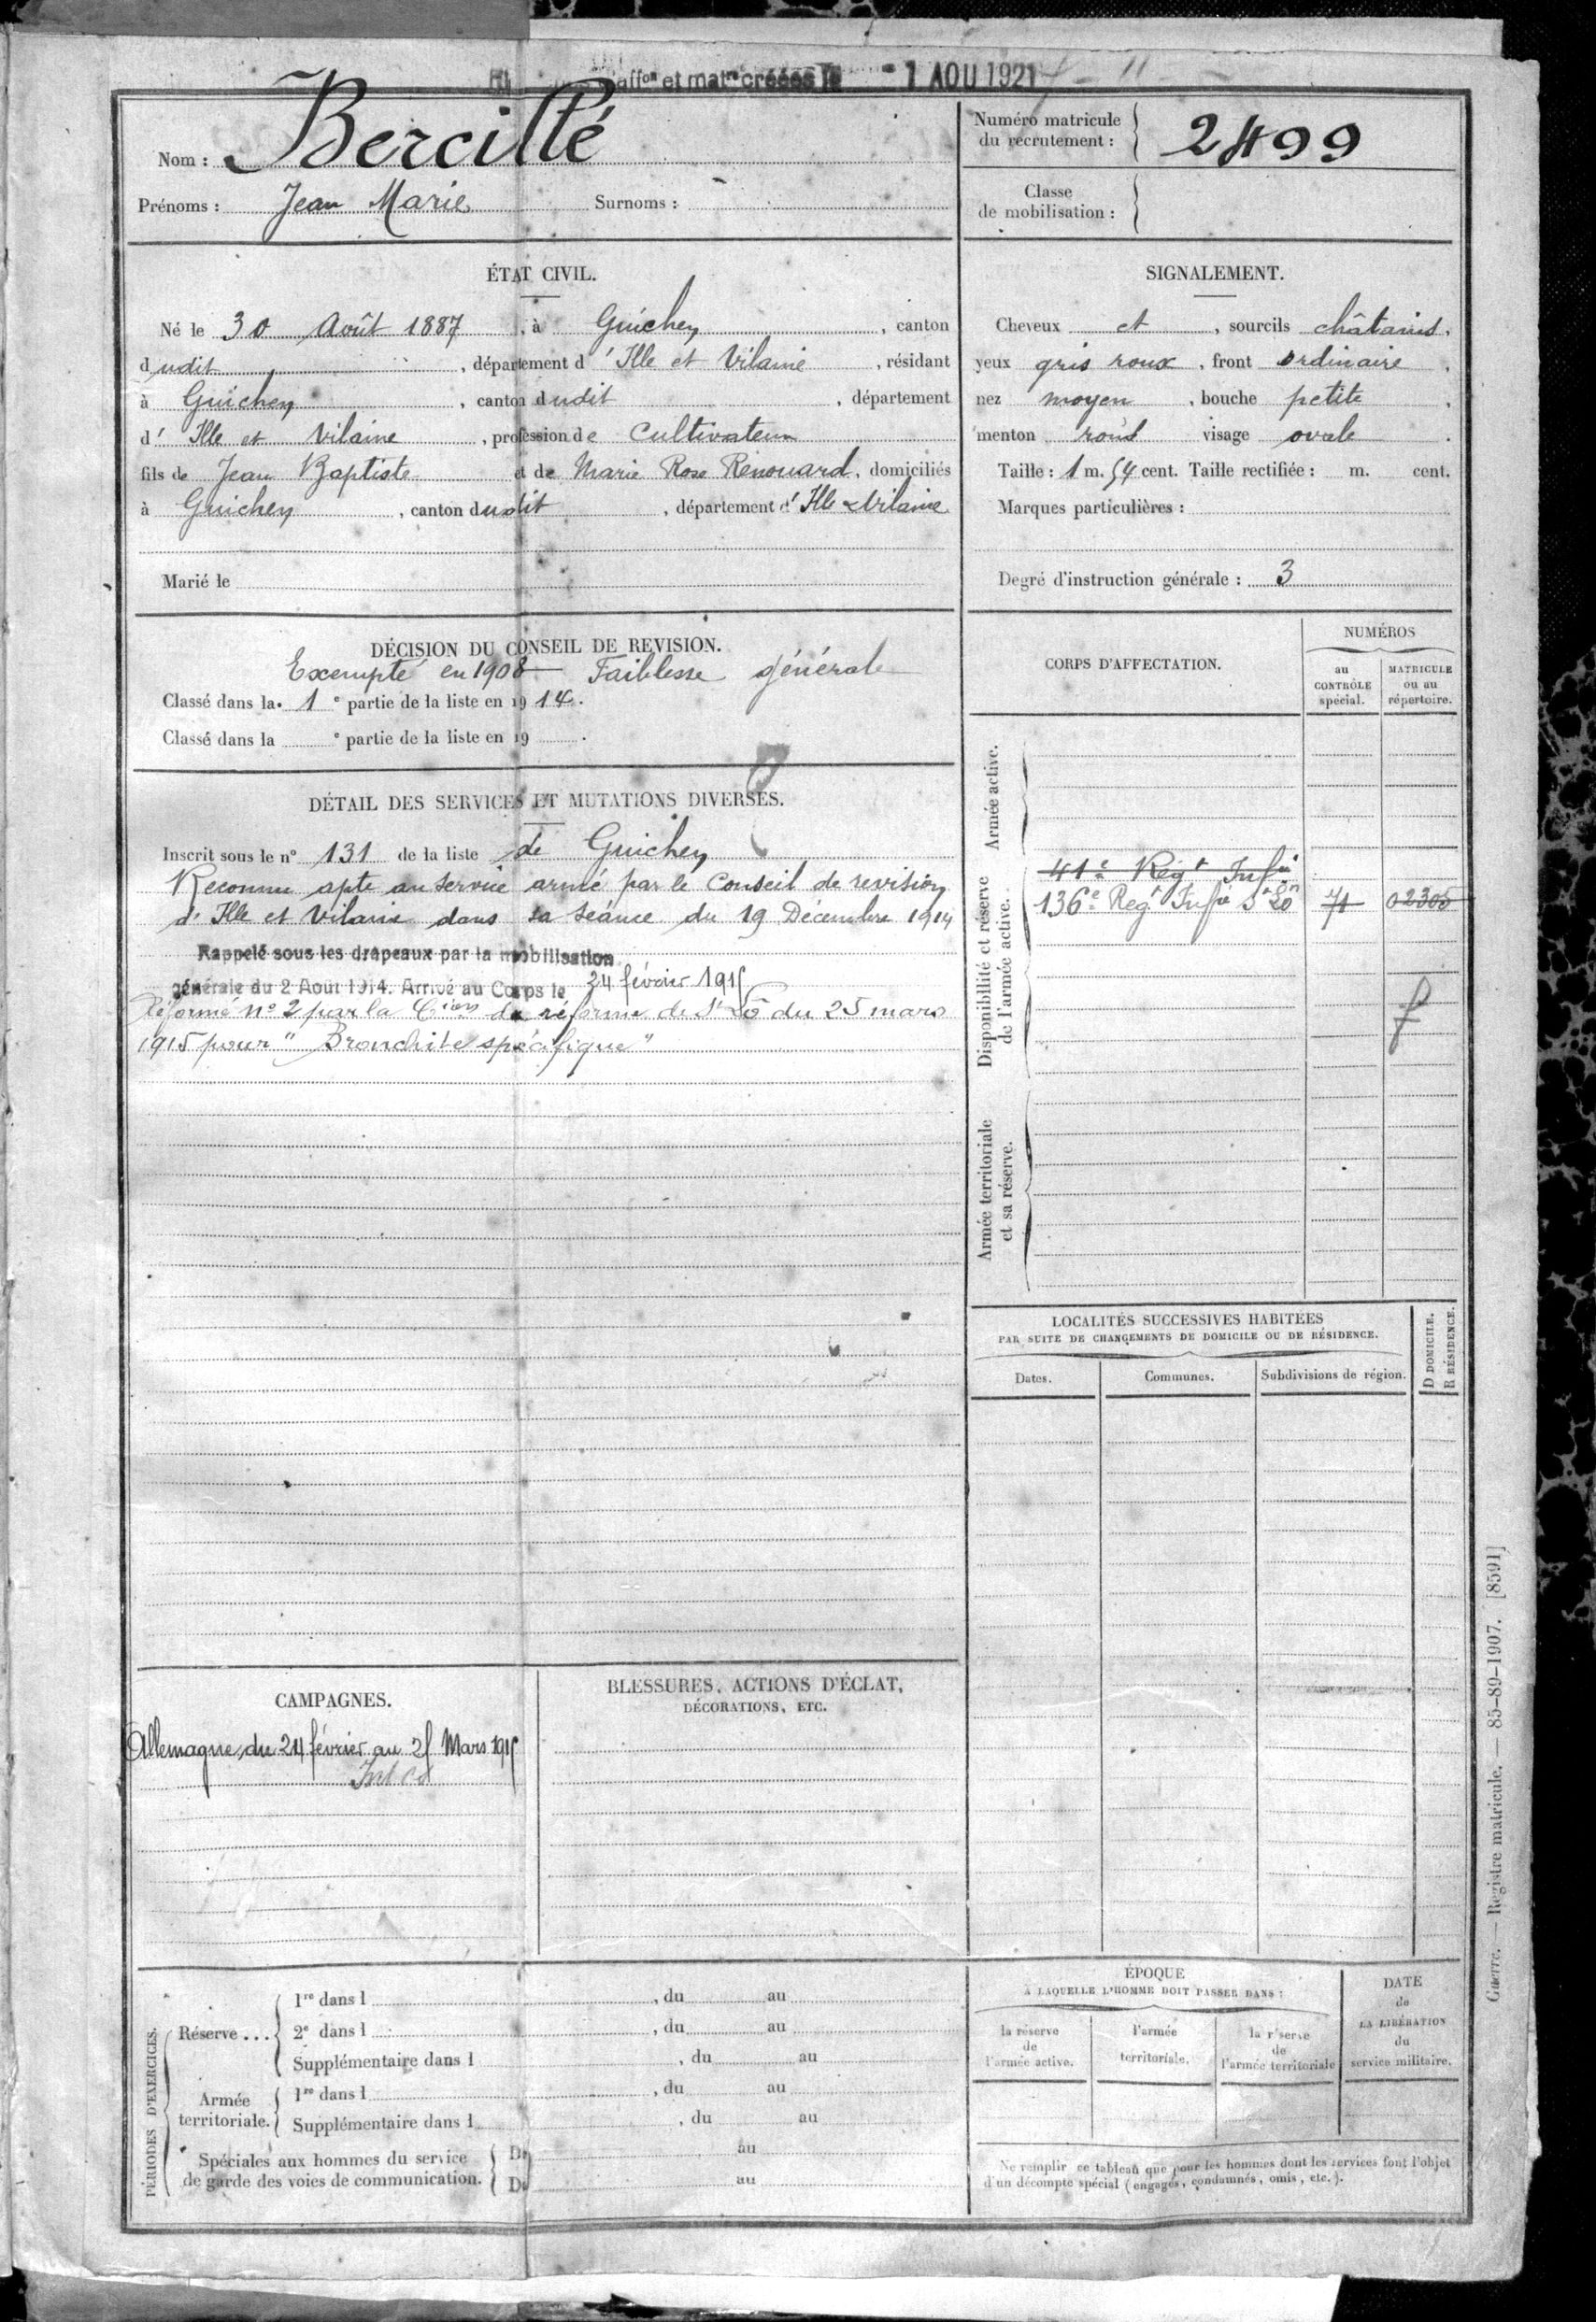 affon et matles créées le - 1 AOU 1921
Nom : Bercillé
Prénoms : Jean Marie Surnoms :
Numéro matricule
du recrutement : 2499
Classe
de mobilisation :
ÉTAT CIVIL.
Né le 30 Août 1887, à Guichen, canton
dudit, département d'Ille et Vilaine, résidant
à Guichen, canton dudit, département
d'Ille et Vilaine, profession de Cultivateur
fils de Jean Baptiste et de Marie Rose Renouard, domiciliés
à Guichen, canton dudit, département d'Ille & Vilaine
Marié le
SIGNALEMENT.
Cheveux et, sourcils châtains,
yeux gris roux, front ordinaire,
nez moyen, bouche petite,
menton rond visage ovale.
Taille : 1 m. 54 cent. Taille rectifiée : m. cent.
Marques particulières :
Degré d'instruction générale : 3
DÉCISION DU CONSEIL DE REVISION.
Exempté en 1908 Faiblesse générale
Classé dans la 1e partie de la liste en 1914.
Classé dans la e partie de la liste en 19 .
DÉTAIL DES SERVICES ET MUTATIONS DIVERSES.
Inscrit sous le n° 131 de la liste de Guichen
Reconnu apte au service armé par le Conseil de revision
d'Ille et Vilaine dans sa séance du 19 Décembre 1914
Rappelé sous les drapeaux par la mobilisation
générale du 2 Août 1914. Arrivé au Corps le 24 février 1915
Réformé n° 2 par la Cion de réforme de St Lô du 25 mars
1915 pour "Bronchite spécifique"
CORPS D'AFFECTATION.
NUMÉROS
au
CONTRÔLE
spécial.
MATRICULE
ou au
répertoire.
Armée active.
Disponibilité et réserve
de l'armée active.
41e Régt Infie
136e Regt Infie St Lô 71 02305
Armée territoriale
et sa réserve.
LOCALITÉS SUCCESSIVES HABITÉES
PAR SUITE DE CHANGEMENTS DE DOMICILE OU DE RÉSIDENCE.
D DOMICILE.
R RÉSIDENCE.
Dates. Communes. Subdivisions de région.
CAMPAGNES.
Allemagne, du 24 février au 25 Mars 1915
BLESSURES, ACTIONS D'ÉCLAT,
DÉCORATIONS, ETC.
PÉRIODES D'EXERCICES.
Réserve ...
1re dans l , du au
2e dans l , du au
Supplémentaire dans l , du au
Armée
territoriale.
1re dans l , du au
Supplémentaire dans l , du au
Spéciales aux hommes du service
de garde des voies de communication.
Du au
Du au
ÉPOQUE
À LAQUELLE L'HOMME DOIT PASSER DANS :
la réserve
de
l'armée active.
l'armée
territoriale.
la réserve
de
l'armée territoriale
DATE
de
LA LIBÉRATION
du
service militaire.
Ne remplir ce tableau que pour les hommes dont les services font l'objet
d'un décompte spécial (engagés, condamnés, omis, etc.).
Guerre. — Registre matricule. — 85-89-1907. [8591]